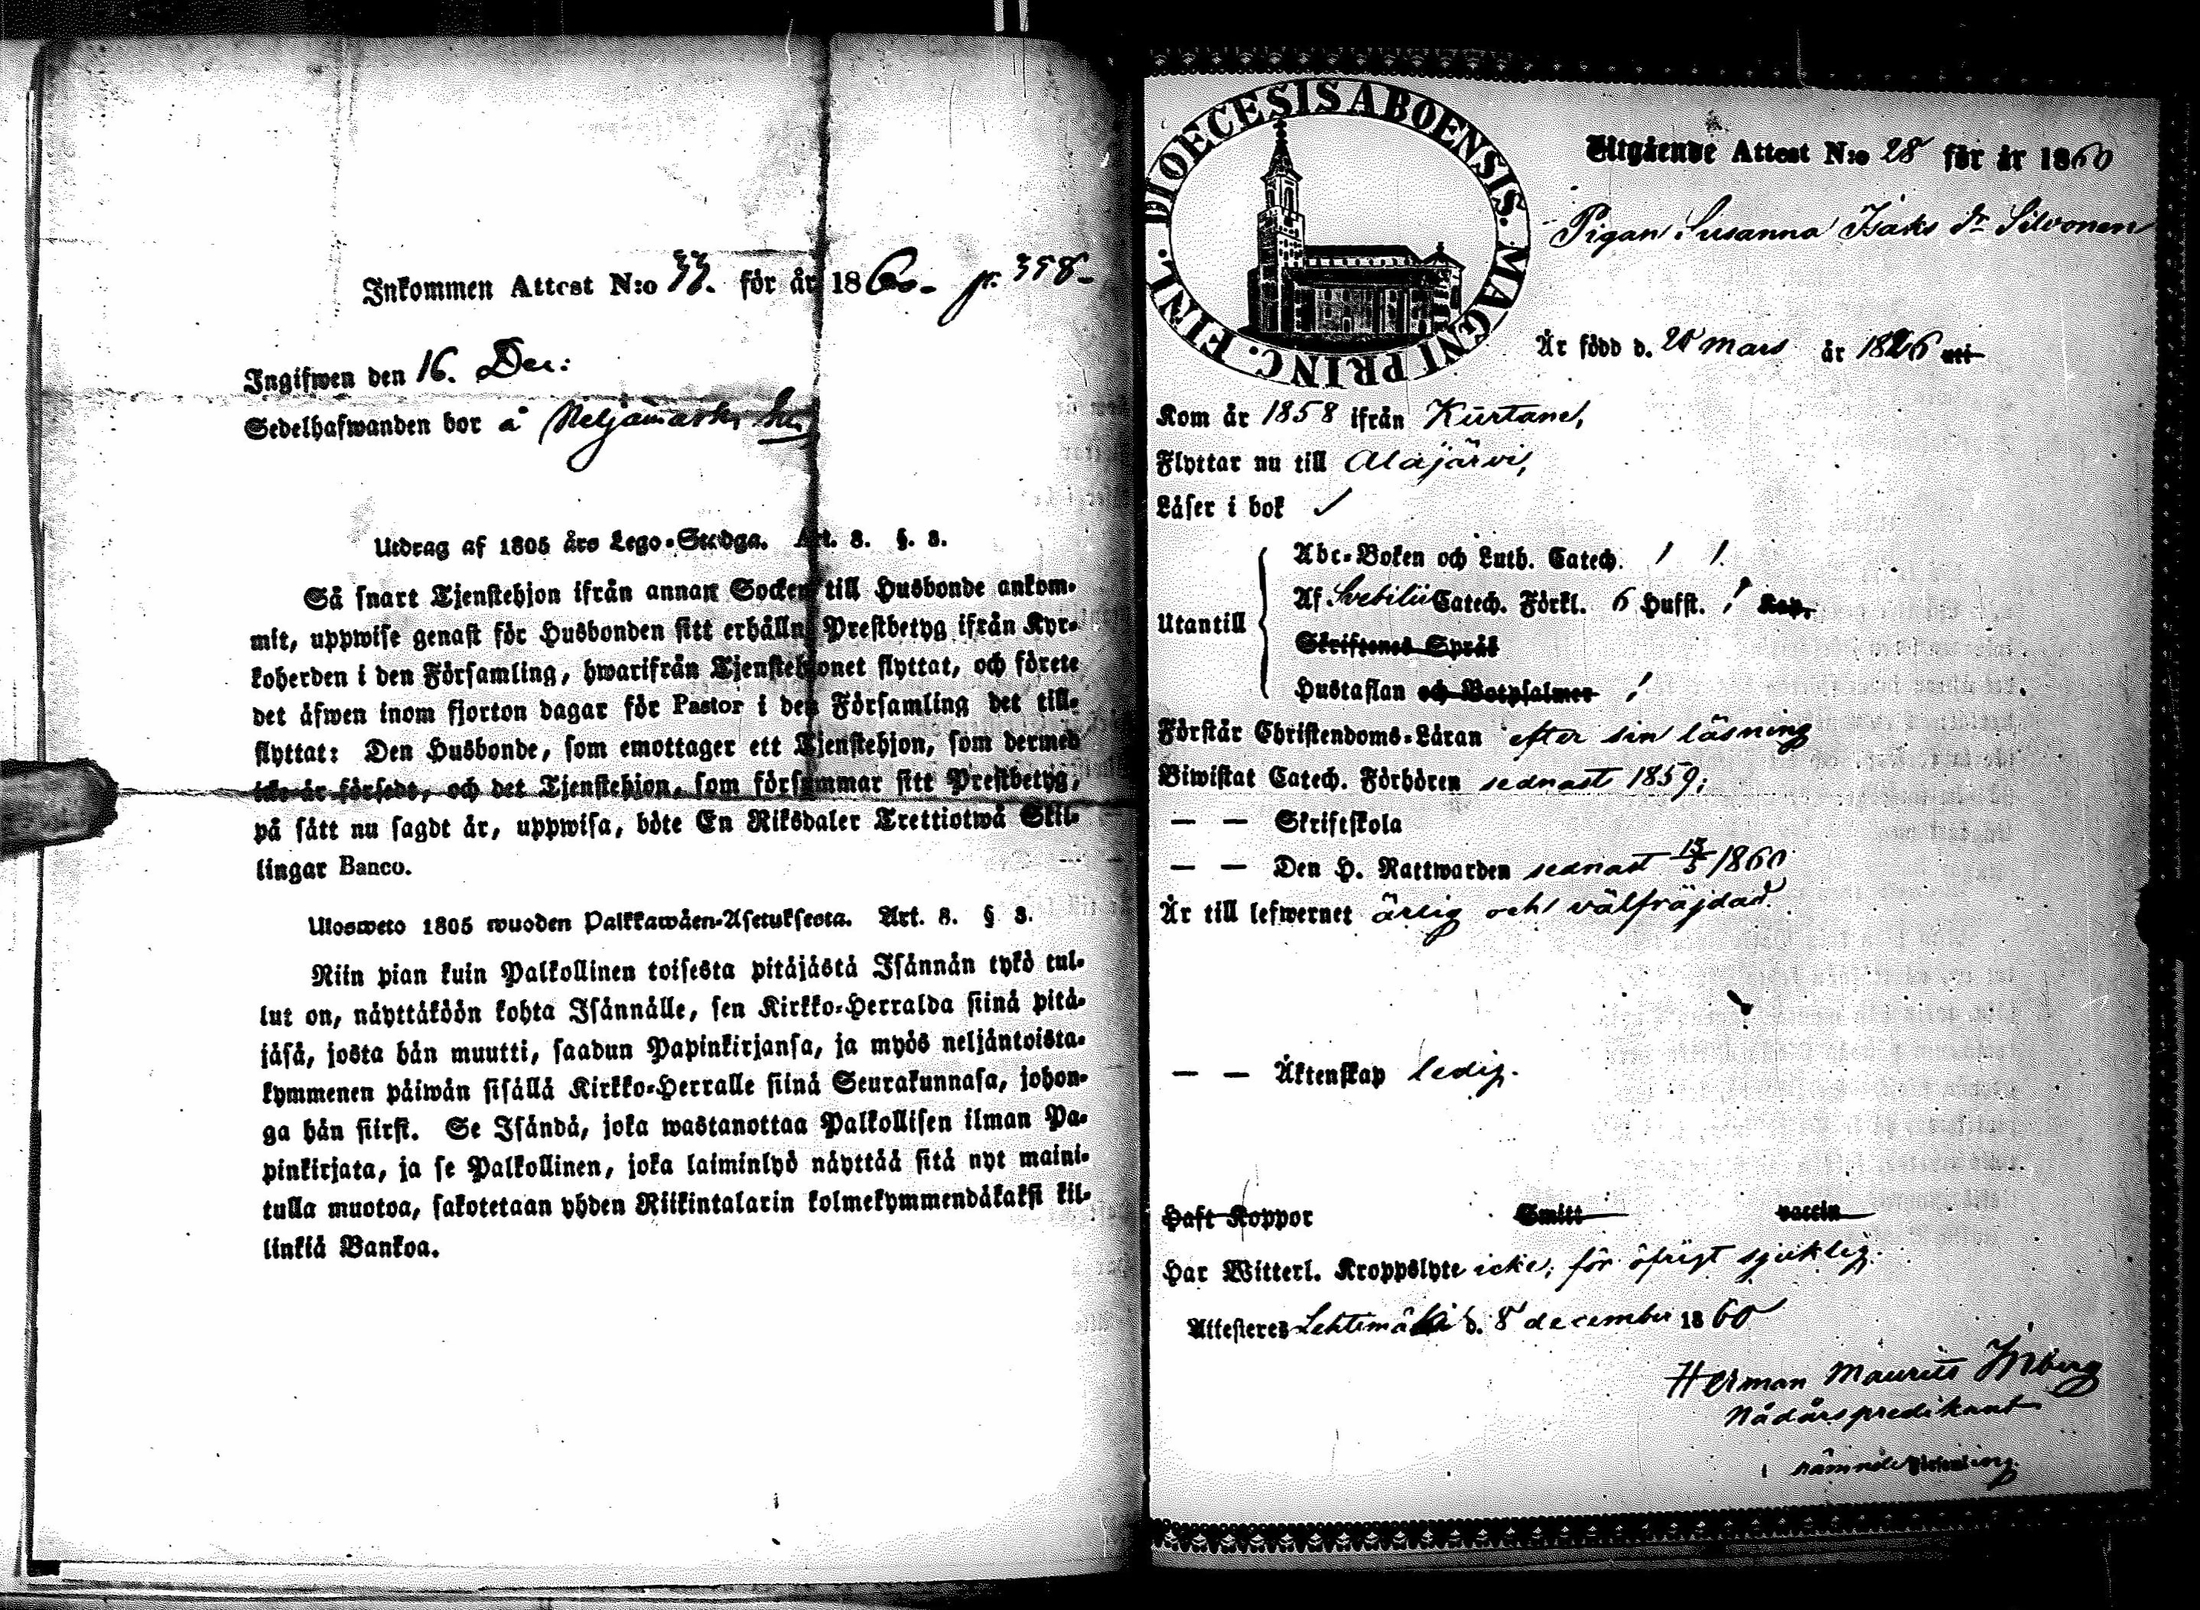 Inkommen Attest N:o 33. för år 1860. p. 358.
Ingifwen den 16. Dec:
Sedelhafwanden bor å Neljämarkku
Utdrag af 1805 års Lego-Stadga. Art. 8. §. 3.
Så snart Tjenstehjon ifrån annan Socken till Husbonde ankom-
mit, uppwise genast för Husbonden sitt erhållna Prestbetyg ifrån Kyr-
koherden i den Församling, hwarifrån Tjenstehjonet flyttat, och förete
det äfwen inom fjorton dagar för Pastor i den Församling det till-
flyttat: Den Husbonde, som emottager ett Tjenstehjon, som dermed
icke är försedt, och det Tjenstehjon, som försummar sitt Prestbetyg,
på sätt nu sagdt är, uppwisa, böte En Riksdaler Trettiotwå Skil-
lingar Banco.
Ulosweto 1805 wuoden Palkkawäen-Asetuksesta. Art. 8. § 3.
Niin pian kuin Palkollinen toisesta pitäjästä Isännän tykö tul-
lut on, näyttäköön kohta Isännälle, sen Kirkko-Herralda siinä pitä-
jäsä, josta hän muutti, saadun Papinkirjansa, ja myös neljäntoista-
kymmenen päiwän sisällä Kirkko-Herralle siinä Seurakunnasa, johon-
ga hän siirsi. Se Isändä, joka wastanottaa Palkollisen ilman Pa-
pinkirjata, ja se Palkollinen, joka laiminlyö näyttää sitä nyt maini-
tulla muotoa, sakotetaan yhden Riikintalarin kolmekymmendäkaksi kil-
linkiä Bankoa.
DIOECESIS ABOENSIS. MAGNI PRINC. FINL.
Utgående Attest N:o 28 för år 1860
Pigan Susanna Isaks dr Silvonen
Är född d. 28 mars år 1826 uti
Kom år 1858 ifrån Kurtane,
Flyttar nu till Alajärvi,
Läser i bok
Abc-Boken och Luth. Catech.
Af Svebilii Catech. Förkl. 6 Hufst. Kap.
Utantill
Skriftenes Språk
Hustaflan och Botpsalmer
Förstår Christendoms-Läran efter sin läsning
Biwistat Catech. Förhören sednast 1859;
— — Skriftskola
— — Den H. Nattwarden sednast 1860
Är till lefwernet ärlig och välfräjdad.
— — Äktenskap ledig.
Haft Koppor Smitt vaccin
Har Witterl. Kroppslyte icke, för öfrigt sjuklig.
Attesteres Lehtimäki d. 8 december 1860
Herman Maurits
Nådårspredikant